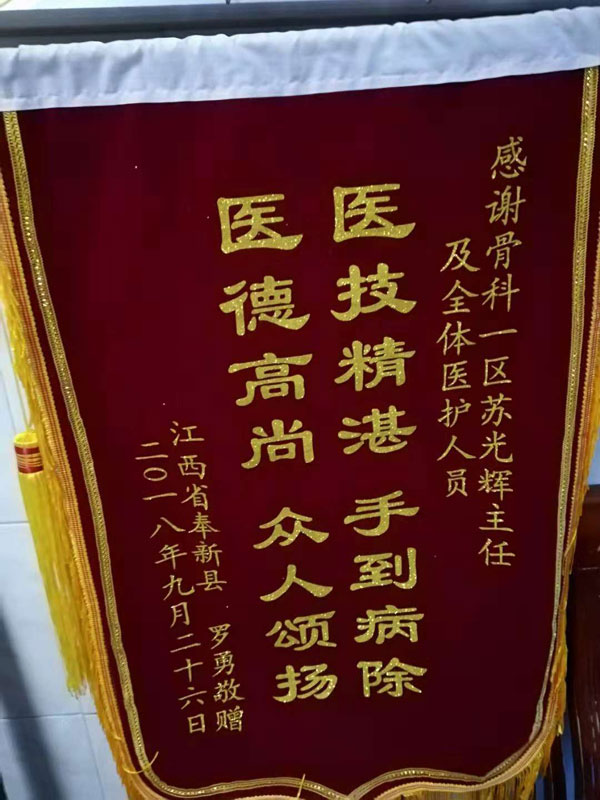 感谢骨科一区苏光辉主任
及全体医护人员
医技精湛 手到病除
医德高尚 众人颂扬
江西省奉新县 罗勇敬赠
二〇一八年九月二十六日